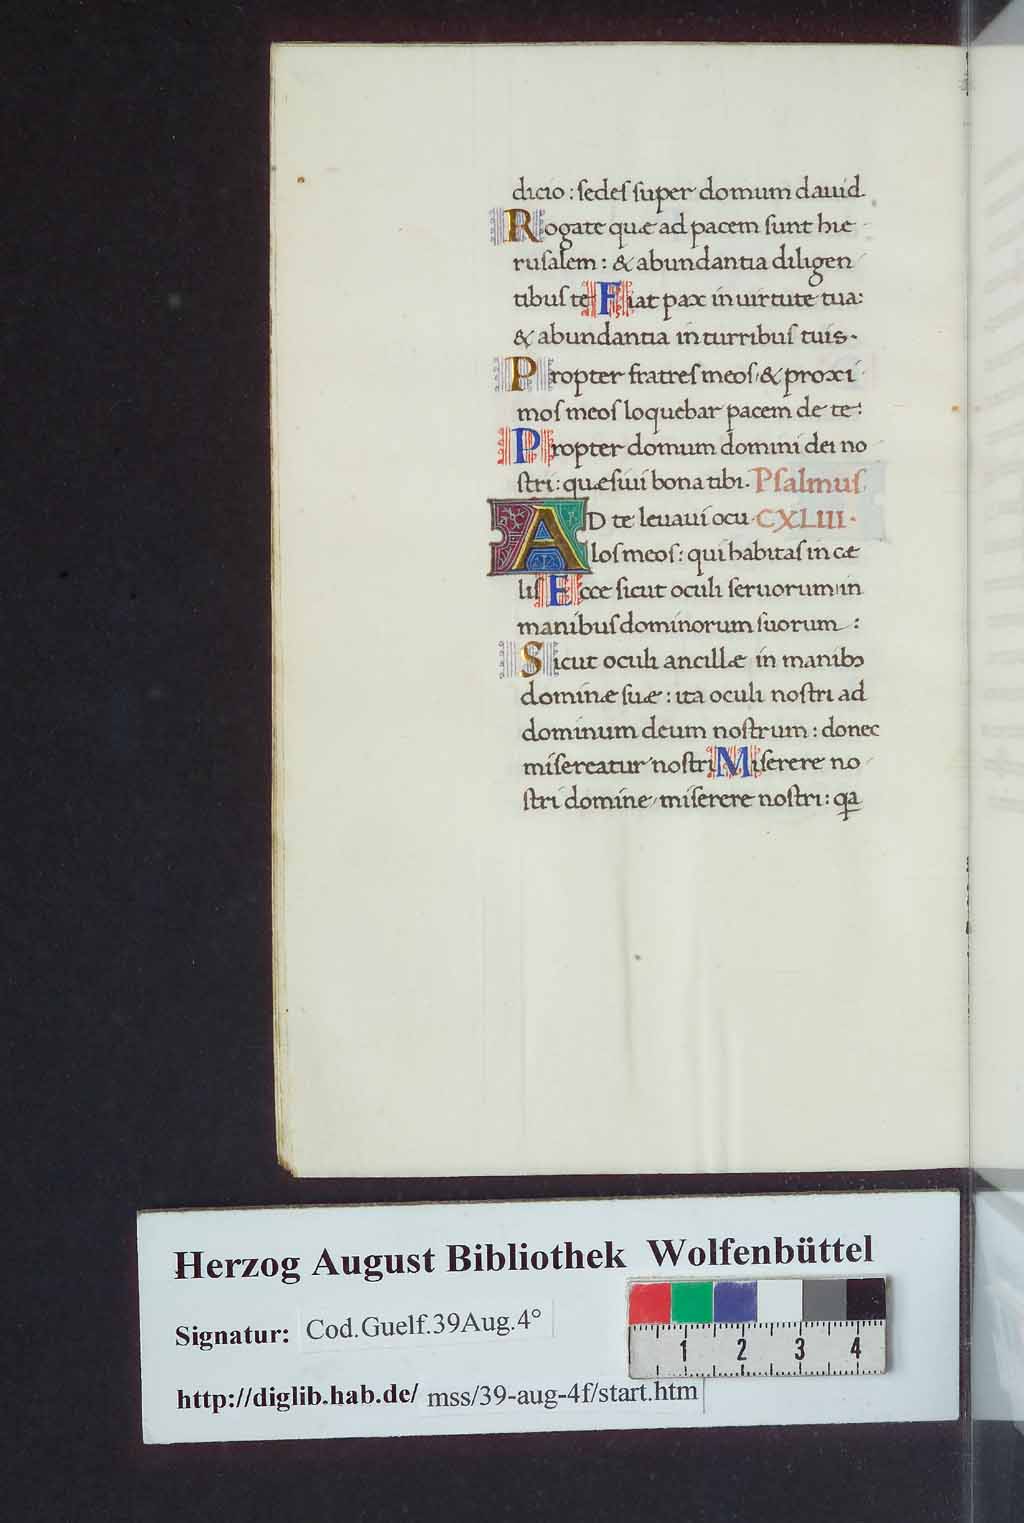 dicio : sedes super domum dauid.
Rogate quæ ad pacem sunt hie-
rusalem : & abundantia diligen-
tibus te Fiat pax in uirtute tua:
& abundantia in turribus tuis.
Propter fratres meos, & proxi-
mos meos loquebar pacem de te:
Propter domum domini dei no-
stri : quæsiui bona tibi. Psalmus
AD te leuaui ocu- CXLIII.
los meos : qui habitas in cæ-
lis Ecce sicut oculi seruorum in
manibus dominorum suorum :
Sicut oculi ancillæ in manibꝫ
dominæ suæ : ita oculi nostri ad
dominum deum nostrum : donec
misereatur nostri Miserere no-
stri domine, miserere nostri : qa
Herzog August Bibliothek Wolfenbüttel
Signatur: Cod.Guelf.39Aug.4°
1 2 3 4
http://diglib.hab.de/ mss/39-aug-4f/start.htm